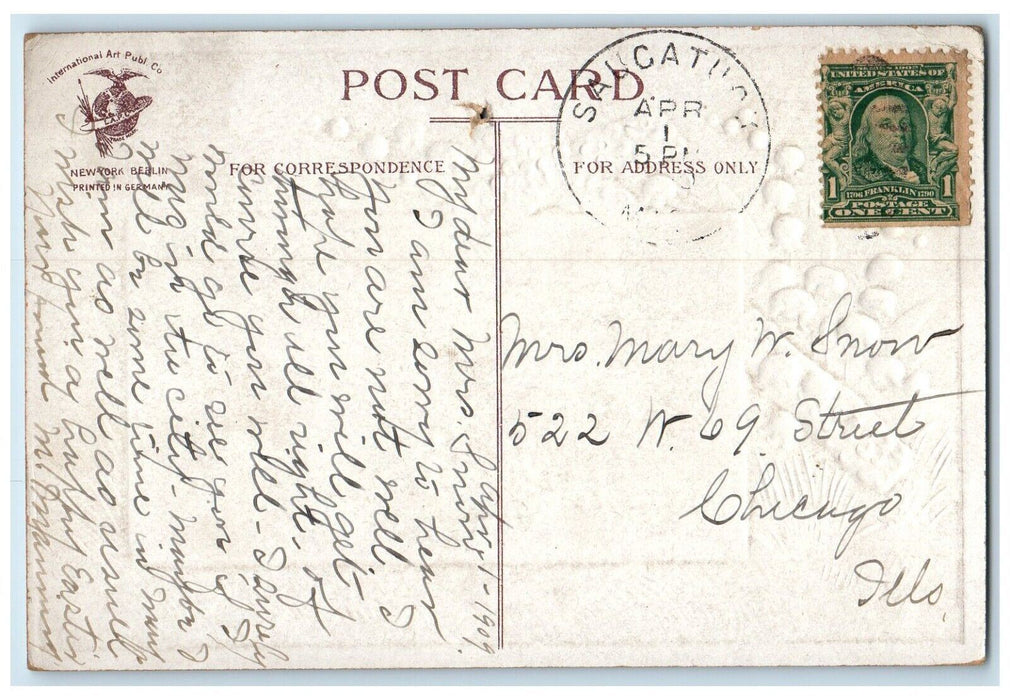 International Art Publ. Co
NEW-YORK BERLIN
PRINTED IN GERMANY
POST CARD
FOR CORRESPONDENCE
FOR ADDRESS ONLY
SAUGATUCK
APR
1
5 PM
SERIES 1902
UNITED STATES OF
AMERICA
1 1
1706 FRANKLIN 1790
POSTAGE
ONE CENT
Mrs. Mary W. Snow
522 W. 69 Street
Chicago
Ills.
Apr. 1 - 1909
My dear Mrs. Snow
I am sorry to hear
you are not well. I
hope you will get
through all right. If
I surely
would go to see you if I
was in the city - maybe I
will be some time in May
I am as well as usual
I wish you a happy Easter
Your friend